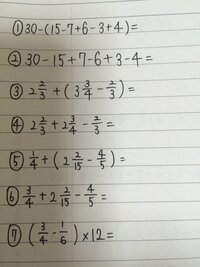 ① 30-(15-7+6-3+4)=
② 30-15+7-6+3-4=
③ 2 2/3 + (3 3/4 - 2/3) =
④ 2 2/3 + 2 3/4 - 2/3 =
⑤ 1/4 + (2 2/15 - 4/5) =
⑥ 3/4 + 2 2/15 - 4/5 =
⑦ (3/4 - 1/6) × 12 =